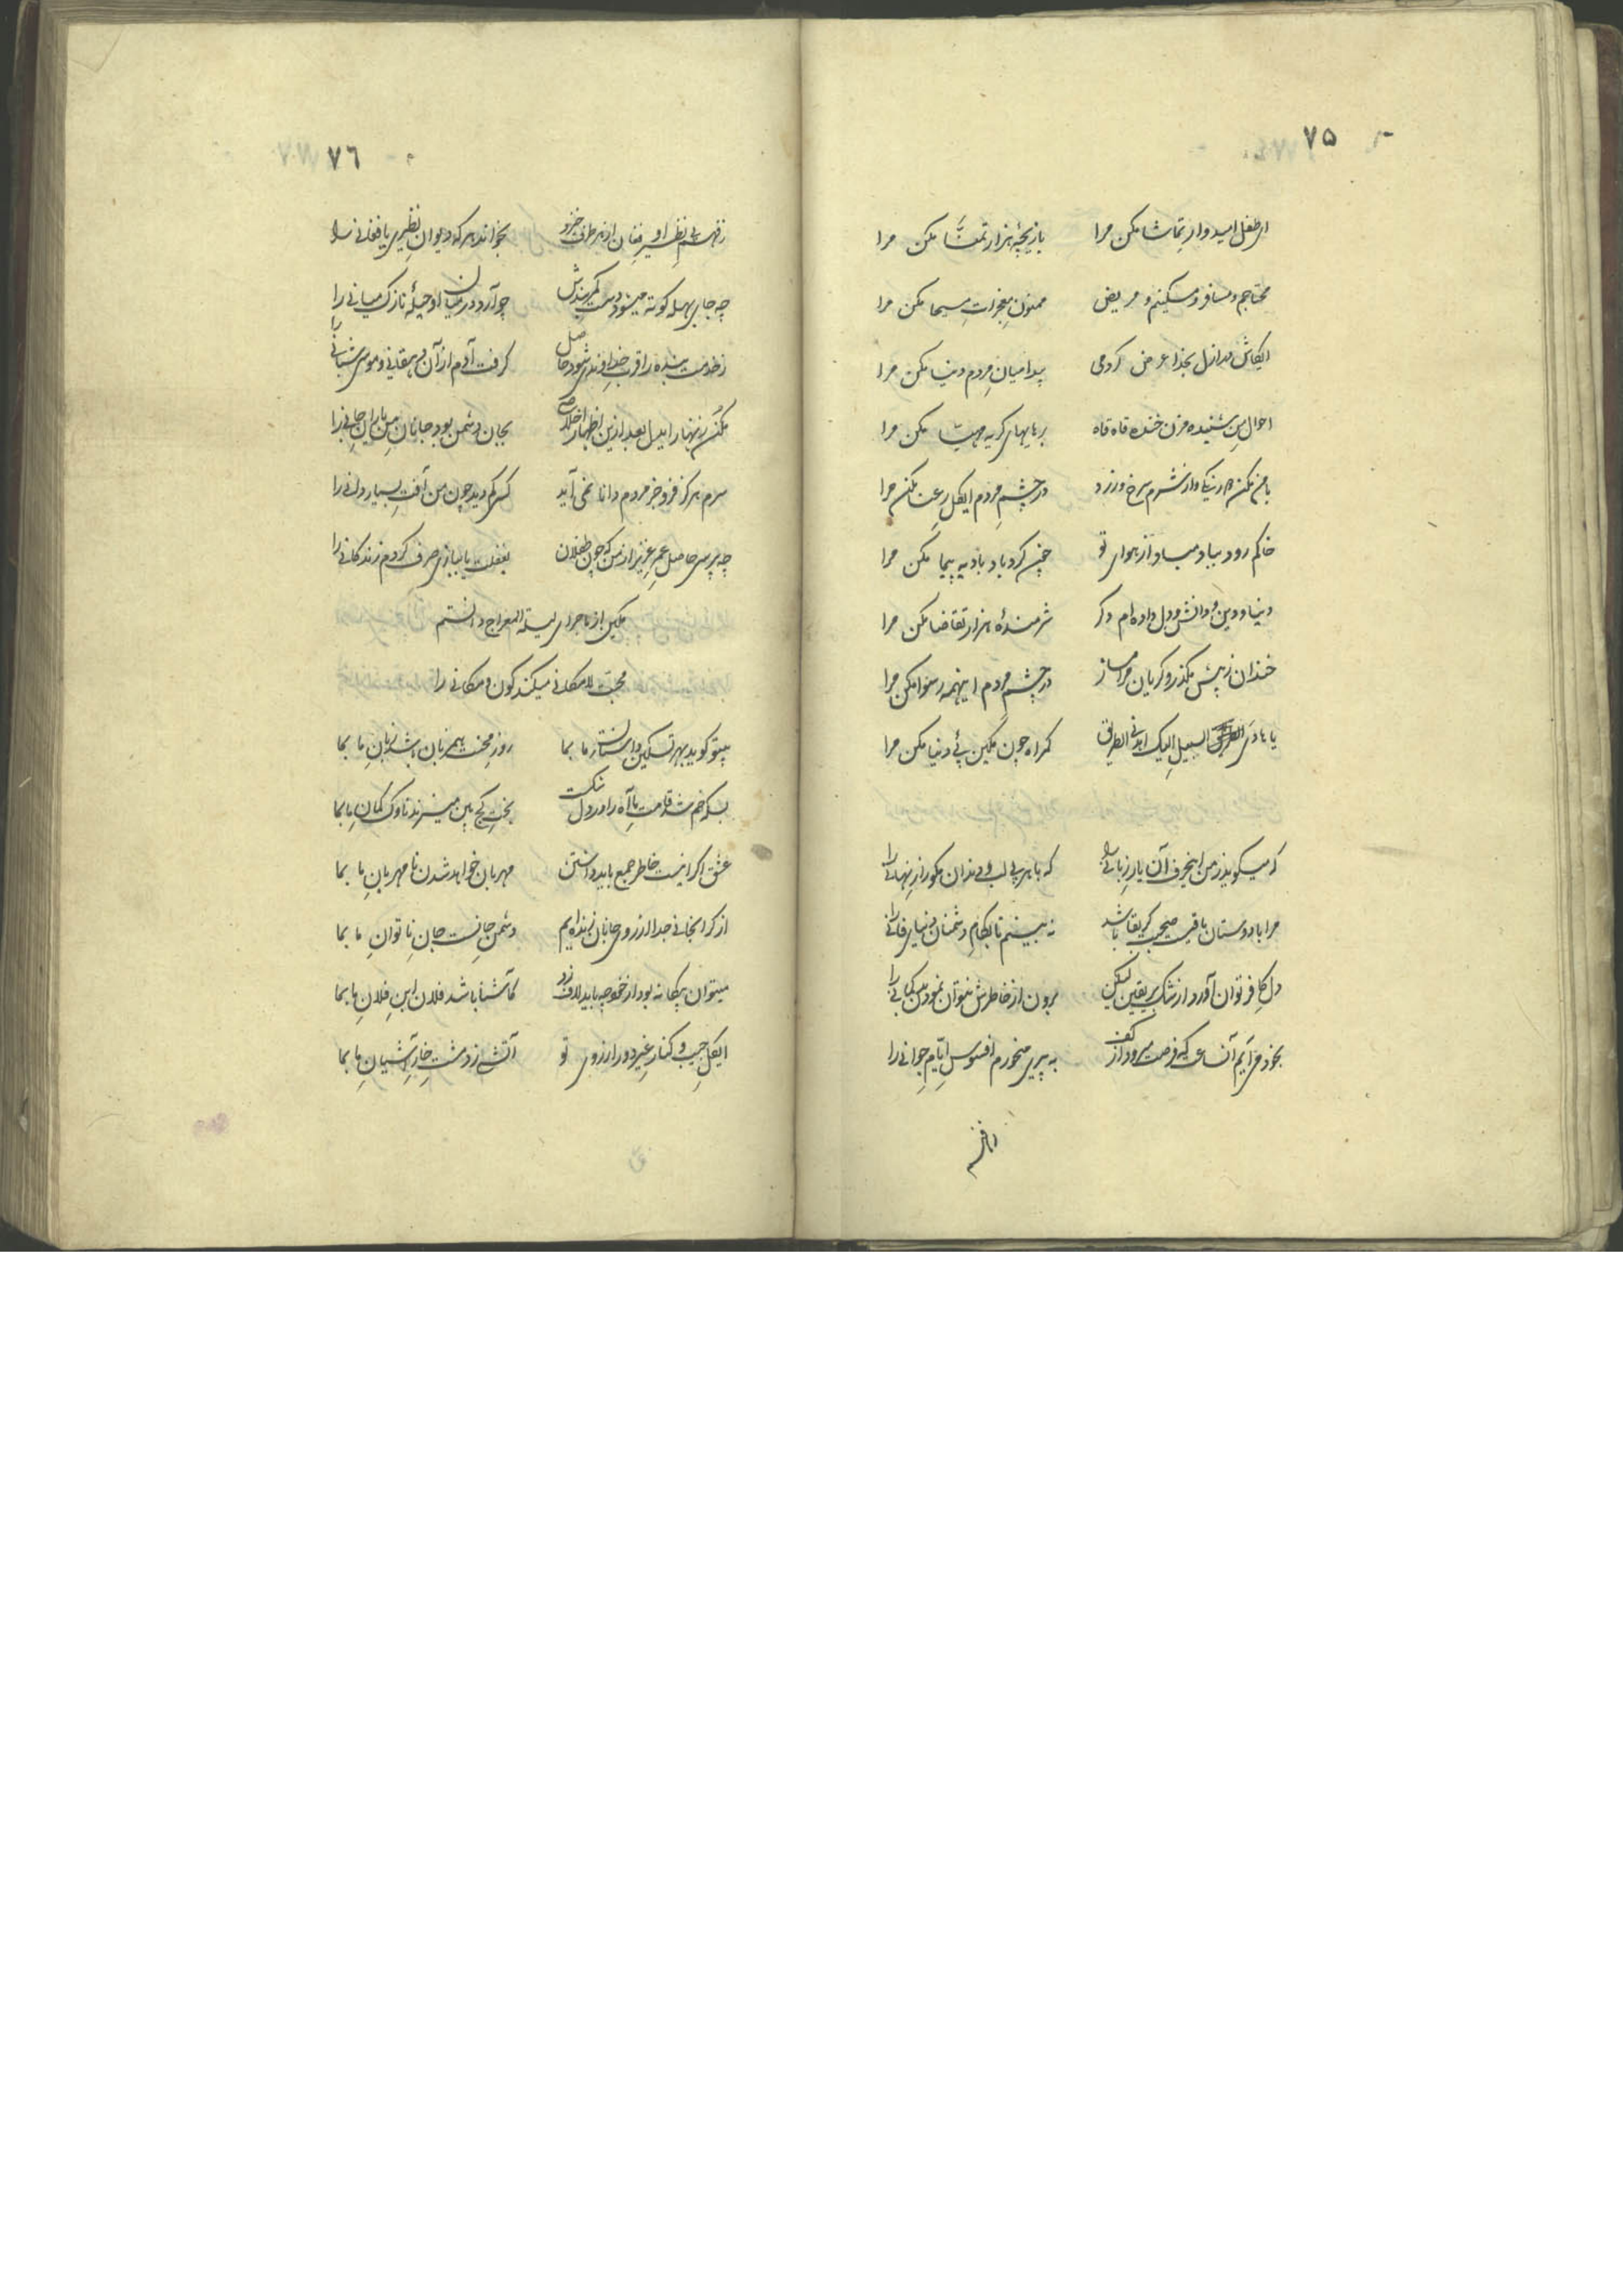 ۷۵
ای طفل امیدوار تماشا مکن مرا بازیچهٔ هزار تمنّا مکن مرا
محتاجم و مسافر و مسکینم و مریض ممنون معجزات مسیحا مکن مرا
ایکاش در ازل بخدا عرض کردمی پیدا میان مردم دنیا مکن مرا
احوال من شنیده مزن خنده قاه قاه بر هایهای گریه مهیّا مکن مرا
با من مکن دو رنگی و از شرم سرخ و زرد در چشم مردم ایگل رعنا مکن مرا
خاکم رود بباد مباد از هوای تو چون گردباد بادیه پیما مکن مرا
دنیا و دین و دانش و دل داده‌ام دگر شرمندهٔ هزار تقاضا مکن مرا
خندان ز پیش مگذر و گریان مرا مساز در چشم مردم اینهمه رسوا مکن مرا
یا هادی السبیل الیک اهدنی الطریق گمراه چون مکین پئ دنیا مکن مرا
که میگوید ز من اینحرف آن یار زبانی را که با هر بی لب و دندان مگو راز نهانی را
مرا با دوستان باقیست صحبت گر بقا باشد نه بینم تا بکام دشمنان دنیای فانی را
دل کافر توان آورد از شک بر یقین لیکن برون از خاطرش نتوان نمود این بدگمانی را
بخود می‌آیم آنساعت که فرصت میرود از کف به پیری میخورم افسوس ایّام جوانی را
۷٦
ز فهم بی نظیر او فغان از هر طرف خیزد بخواند هر که دیوان نظیری یا فغانی را
چه جای بهله کوته میشود دست کمربندش چو آرد در میان او حیلهٔ نازک میانی را
ز خدمت بنده را قرب خداوندی شود حاصل گرفت آدم از آن دهقانی و موسی شبانی را
مکن زنهار ایدل بعد ازین اظهار اخلاص بجان دشمن بود جانان من یاران جانی را
سرم هرگز فرو جز مردم دانا نمی آید کسی کم دید چون من آفت بسیار دانی را
چه پرسی حاصل عمر عزیز از من که چون طفلان بغفلت یا ببازی صرف کردم زندگانی را
مکین از ماجرای لیلة المعراج دانستم
محبت لامکانی میکند کون و مکانی را
بیتو گوید بهر تسکین داستان ما بما روز محنت همزبان باشد زبان ما بما
بسکه خم شد قامت ما آه را در دل شکست بخت کج بین میزند ناوک کمان ما بما
عشق اگر اینست خاطر جمع باید داشتن مهربان خواهد شدن نامهربان ما بما
از گرانجانی جدا از روی جانان زنده‌ایم دشمن جانست جان ناتوان ما بما
میتوان بیگانه بود از خود چه باید لاف زد کاشنا باشد فلان ابن فلان ما بما
ایگل جیب و کنار غیر دور از روی تو آتشی زد مشت خار آشیان ما بما